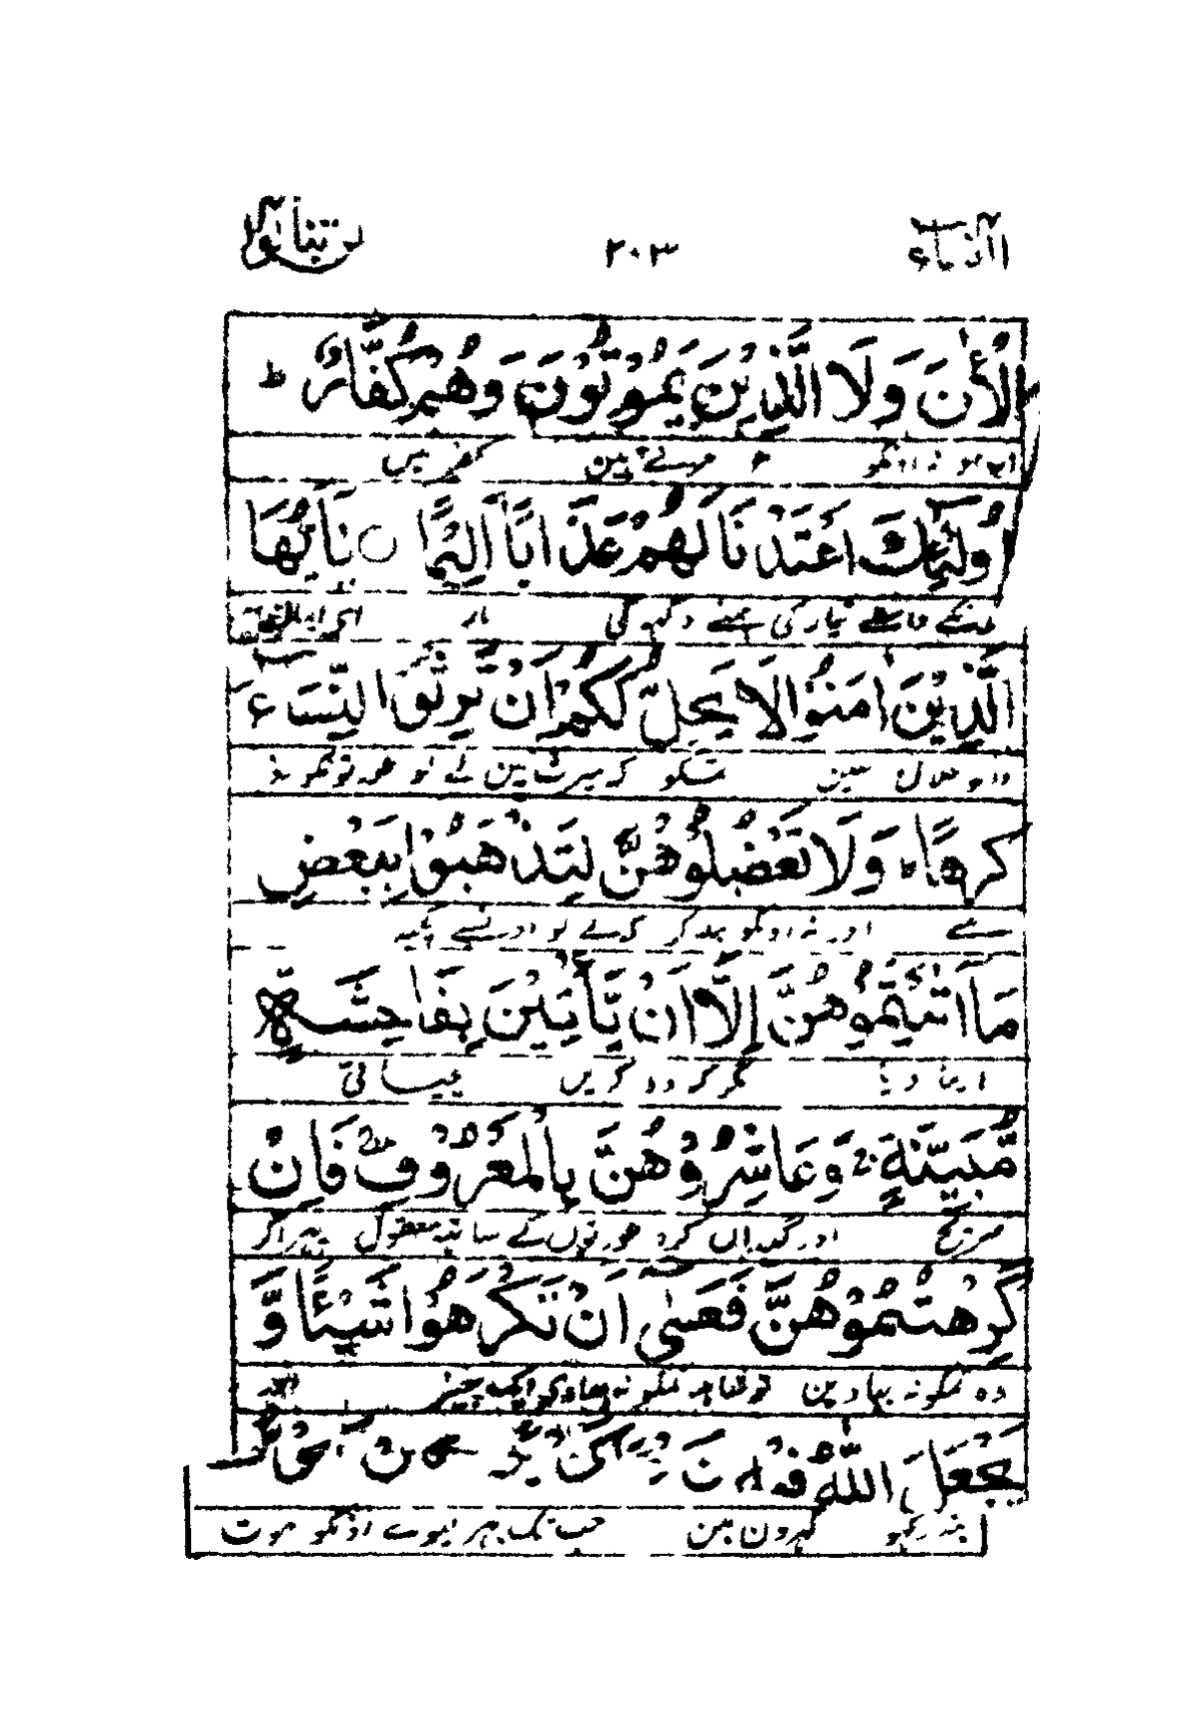 النساء ۲۰۳ لن تنالوا
الْأٰنَ وَلَا الَّذِيْنَ يَمُوْتُوْنَ وَهُمْ كُفَّارٌ ط
اب اور نہ اونکو مرتے ہین کفر میں
اُولٰٓئِكَ اَعْتَدْنَا لَهُمْ عَذَابًا اَلِيْمًا ○ يٰٓاَيُّهَا
واسطے تیار کی ہمنے دکھہ کی مار
الَّذِيْنَ اٰمَنُوْا لَا يَحِلُّ لَكُمْ اَنْ تَرِثُوا النِّسَآءَ
حلال نہین تمکو کہ میراث مین لے لو عورتونکو
كَرْهًا ؕ وَلَا تَعْضُلُوْهُنَّ لِتَذْهَبُوْا بِبَعْضِ
سے اور نہ اونکو بند کر کہ لے لو اونسے کچہہ
مَآ اٰتَيْتُمُوْهُنَّ اِلَّآ اَنْ يَّاْتِيْنَ بِفَاحِشَةٍ
اپنا دیا مگر کہ وہ کریں بیحیائی
مُّبَيِّنَةٍ ۚ وَعَاشِرُوْهُنَّ بِالْمَعْرُوْفِ ۚ فَاِنْ
صریح اور گذران کرو عورتوں کے ساتہہ معقول پہر اگر
كَرِهْتُمُوْهُنَّ فَعَسٰٓى اَنْ تَكْرَهُوْا شَيْئًا وَّ
وہ تمکو نہ بہاوین تو شاید تمکو نہ بہاوے ایک چیز اور
يَجْعَلَ اللّٰهُ
بند رکہو گہرون مین جب تک پہر لیوے اونکو موت